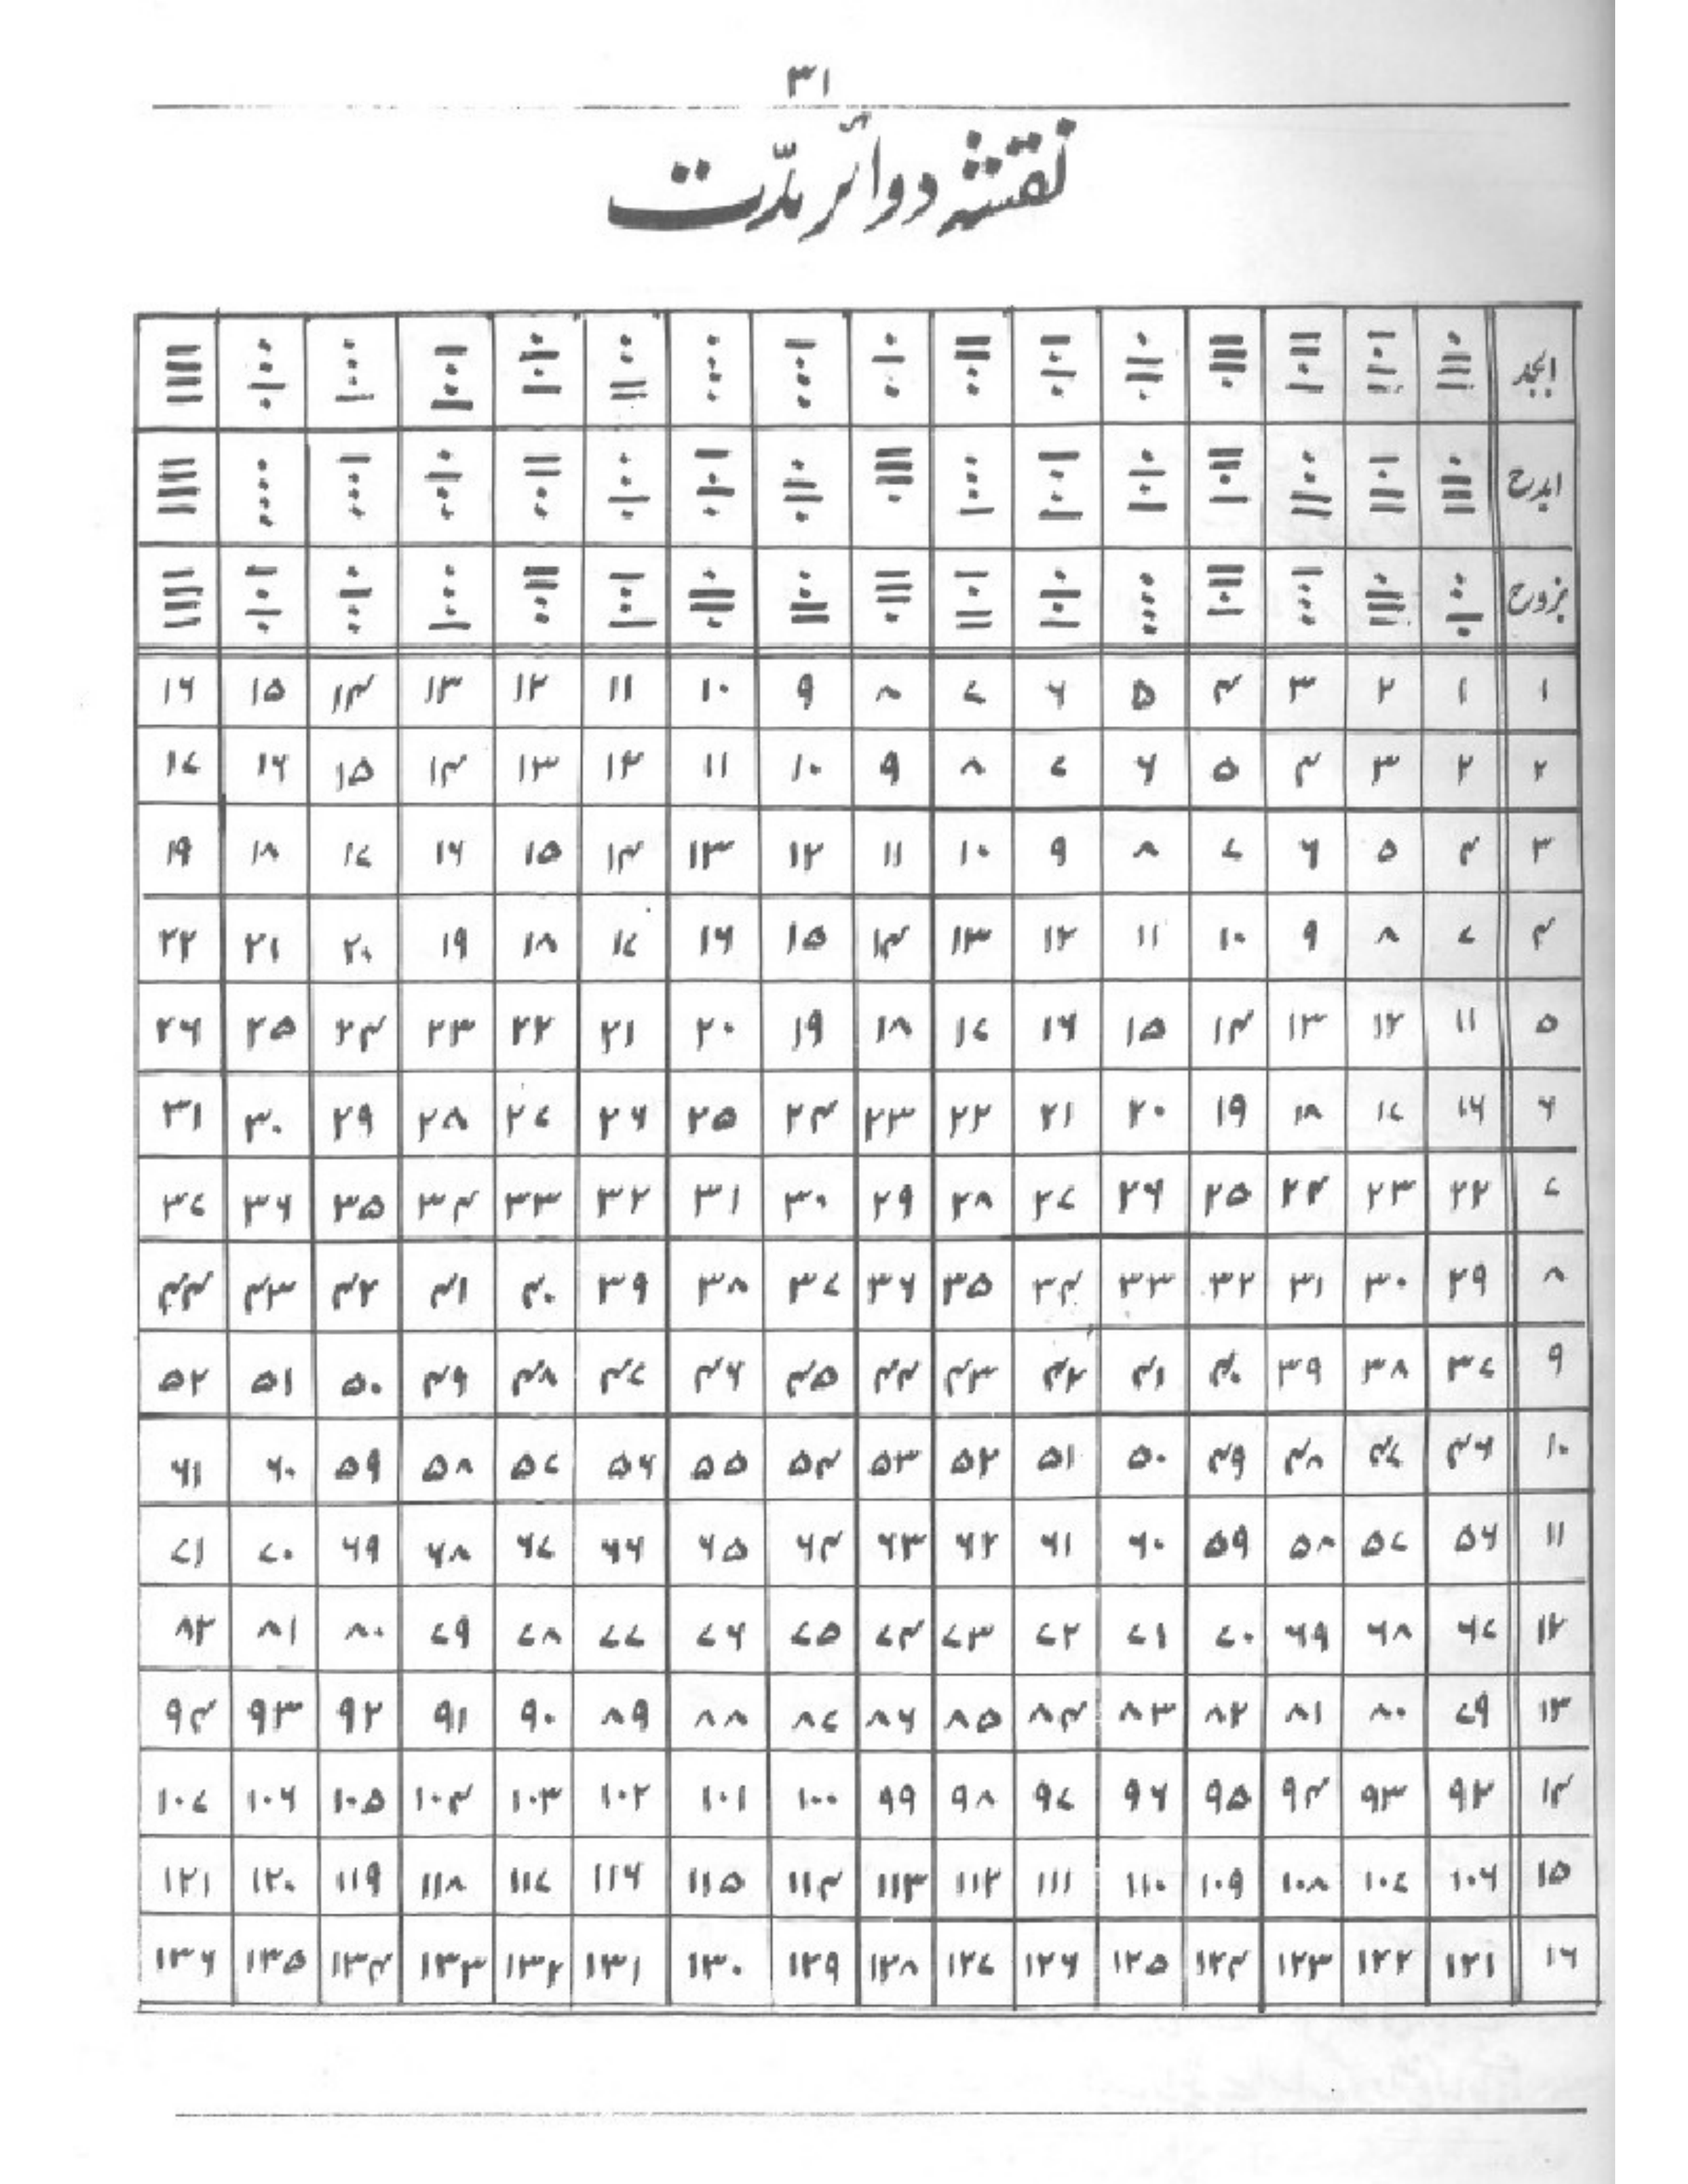 ۳۱
نقشہ دوائر مدّت
ابجد
ابدح
بزدح
۱ ۱ ۲ ۳ ۴ ۵ ۶ ۷ ۸ ۹ ۱۰ ۱۱ ۱۲ ۱۳ ۱۴ ۱۵ ۱۶
۲ ۲ ۳ ۴ ۵ ۶ ۷ ۸ ۹ ۱۰ ۱۱ ۱۲ ۱۳ ۱۴ ۱۵ ۱۶ ۱۷
۳ ۴ ۵ ۶ ۷ ۸ ۹ ۱۰ ۱۱ ۱۲ ۱۳ ۱۴ ۱۵ ۱۶ ۱۷ ۱۸ ۱۹
۴ ۷ ۸ ۹ ۱۰ ۱۱ ۱۲ ۱۳ ۱۴ ۱۵ ۱۶ ۱۷ ۱۸ ۱۹ ۲۰ ۲۱ ۲۲
۵ ۱۱ ۱۲ ۱۳ ۱۴ ۱۵ ۱۶ ۱۷ ۱۸ ۱۹ ۲۰ ۲۱ ۲۲ ۲۳ ۲۴ ۲۵ ۲۶
۶ ۱۶ ۱۷ ۱۸ ۱۹ ۲۰ ۲۱ ۲۲ ۲۳ ۲۴ ۲۵ ۲۶ ۲۷ ۲۸ ۲۹ ۳۰ ۳۱
۷ ۲۲ ۲۳ ۲۴ ۲۵ ۲۶ ۲۷ ۲۸ ۲۹ ۳۰ ۳۱ ۳۲ ۳۳ ۳۴ ۳۵ ۳۶ ۳۷
۸ ۲۹ ۳۰ ۳۱ ۳۲ ۳۳ ۳۴ ۳۵ ۳۶ ۳۷ ۳۸ ۳۹ ۴۰ ۴۱ ۴۲ ۴۳ ۴۴
۹ ۳۷ ۳۸ ۳۹ ۴۰ ۴۱ ۴۲ ۴۳ ۴۴ ۴۵ ۴۶ ۴۷ ۴۸ ۴۹ ۵۰ ۵۱ ۵۲
۱۰ ۴۶ ۴۷ ۴۸ ۴۹ ۵۰ ۵۱ ۵۲ ۵۳ ۵۴ ۵۵ ۵۶ ۵۷ ۵۸ ۵۹ ۶۰ ۶۱
۱۱ ۵۶ ۵۷ ۵۸ ۵۹ ۶۰ ۶۱ ۶۲ ۶۳ ۶۴ ۶۵ ۶۶ ۶۷ ۶۸ ۶۹ ۷۰ ۷۱
۱۲ ۶۷ ۶۸ ۶۹ ۷۰ ۷۱ ۷۲ ۷۳ ۷۴ ۷۵ ۷۶ ۷۷ ۷۸ ۷۹ ۸۰ ۸۱ ۸۲
۱۳ ۷۹ ۸۰ ۸۱ ۸۲ ۸۳ ۸۴ ۸۵ ۸۶ ۸۷ ۸۸ ۸۹ ۹۰ ۹۱ ۹۲ ۹۳ ۹۴
۱۴ ۹۲ ۹۳ ۹۴ ۹۵ ۹۶ ۹۷ ۹۸ ۹۹ ۱۰۰ ۱۰۱ ۱۰۲ ۱۰۳ ۱۰۴ ۱۰۵ ۱۰۶ ۱۰۷
۱۵ ۱۰۶ ۱۰۷ ۱۰۸ ۱۰۹ ۱۱۰ ۱۱۱ ۱۱۲ ۱۱۳ ۱۱۴ ۱۱۵ ۱۱۶ ۱۱۷ ۱۱۸ ۱۱۹ ۱۲۰ ۱۲۱
۱۶ ۱۲۱ ۱۲۲ ۱۲۳ ۱۲۴ ۱۲۵ ۱۲۶ ۱۲۷ ۱۲۸ ۱۲۹ ۱۳۰ ۱۳۱ ۱۳۲ ۱۳۳ ۱۳۴ ۱۳۵ ۱۳۶